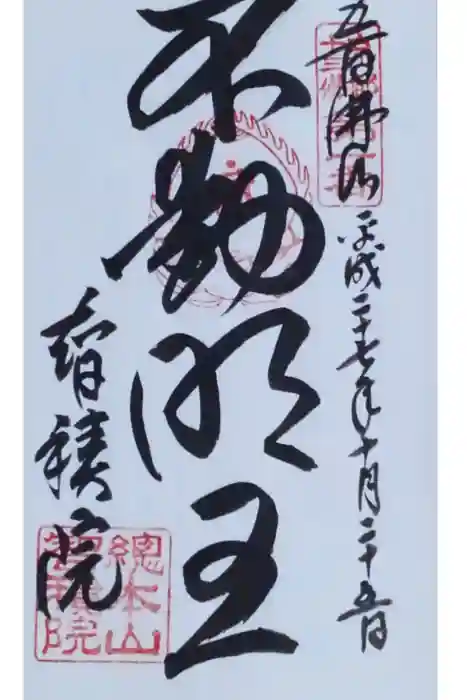 五百佛頂 平成二十七年十月二十五日
不動明王
智積院
總本山
智積院